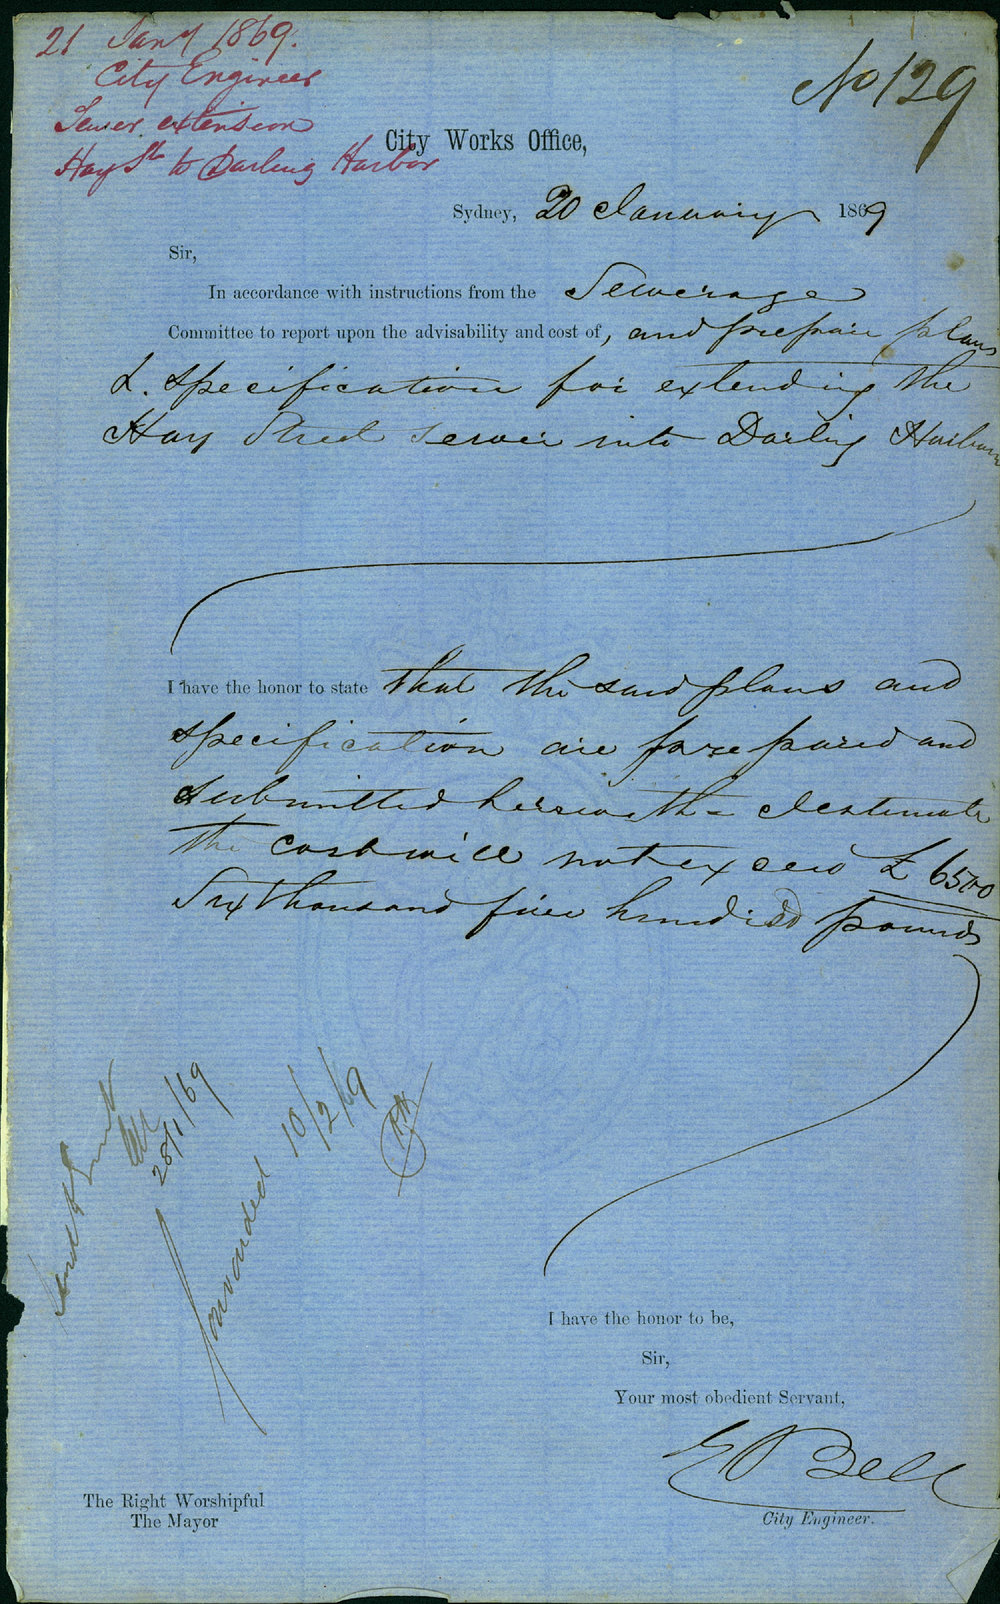 21 Jany 1869.
City Engineer
Sewer extension
Hay St to Darling Harbor
No 129
City Works Office,
Sydney, 20 January 1869
Sir,
In accordance with instructions from the Sewerage
Committee to report upon the advisability and cost of, and prepare plans
& Specification for extending the
Hay Street Sewer into Darling Harbour
I have the honor to state that the said plans and
Specification are prepared and
submitted herewith I estimate
the cost will not exceed £6500
Six thousand five hundred pounds
28/1/69
Forwarded 10/2/69
I have the honor to be,
Sir,
Your most obedient Servant,
E Bell
City Engineer.
The Right Worshipful
The Mayor